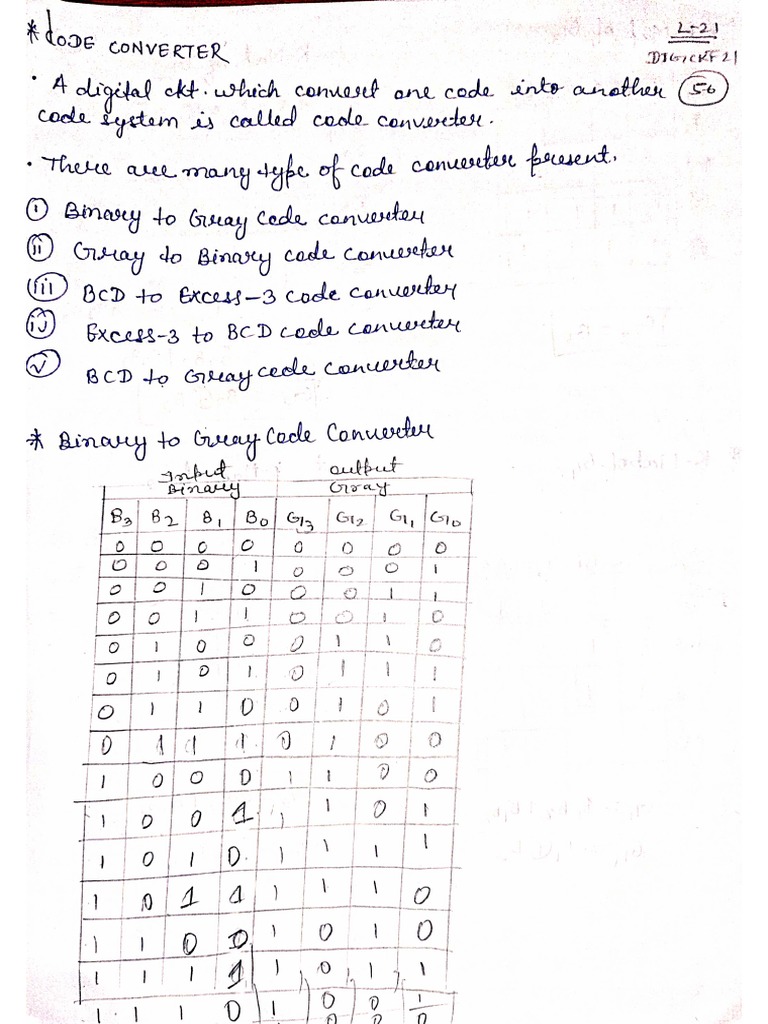 * CODE CONVERTER
L-21
DIGICKT 21
• A digital ckt. which convert one code into another
56
code system is called code converter.
• There are many type of code converter present.
(i) Binary to Gray Code converter
(ii) Gray to Binary code converter
(iii) BCD to Excess-3 code converter
(iv) Excess-3 to BCD code converter
(v) BCD to Gray code converter
* Binary to Gray Code Converter
Input output
Binary Gray
B3 B2 B1 B0 G3 G2 G1 G0
0 0 0 0 0 0 0 0
0 0 0 1 0 0 0 1
0 0 1 0 0 0 1 1
0 0 1 1 0 0 1 0
0 1 0 0 0 1 1 0
0 1 0 1 0 1 1 1
0 1 1 0 0 1 0 1
0 1 1 1 0 1 0 0
1 0 0 0 1 1 0 0
1 0 0 1 1 1 0 1
1 0 1 0 1 1 1 1
1 0 1 1 1 1 1 0
1 1 0 0 1 0 1 0
1 1 1 1 1 0 1 1
1 1 1 0 1 0 0 1
0 0 0